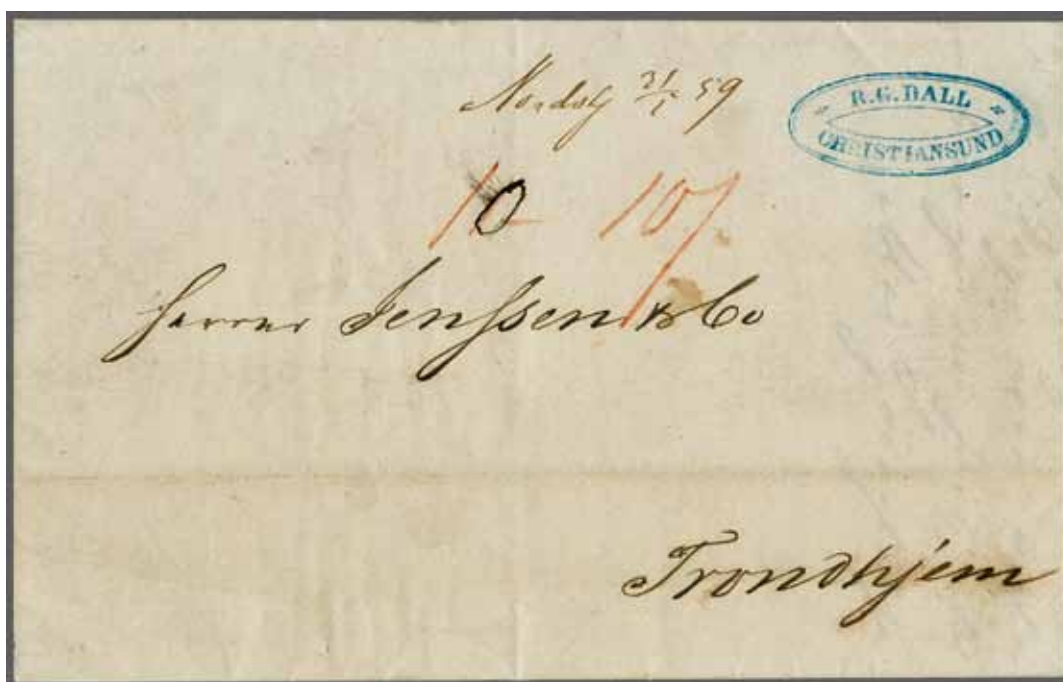 31/5 59
R.G. DALL
CHRISTIANSUND
10 10
Herrer Jenssen & Co
Trondhjem